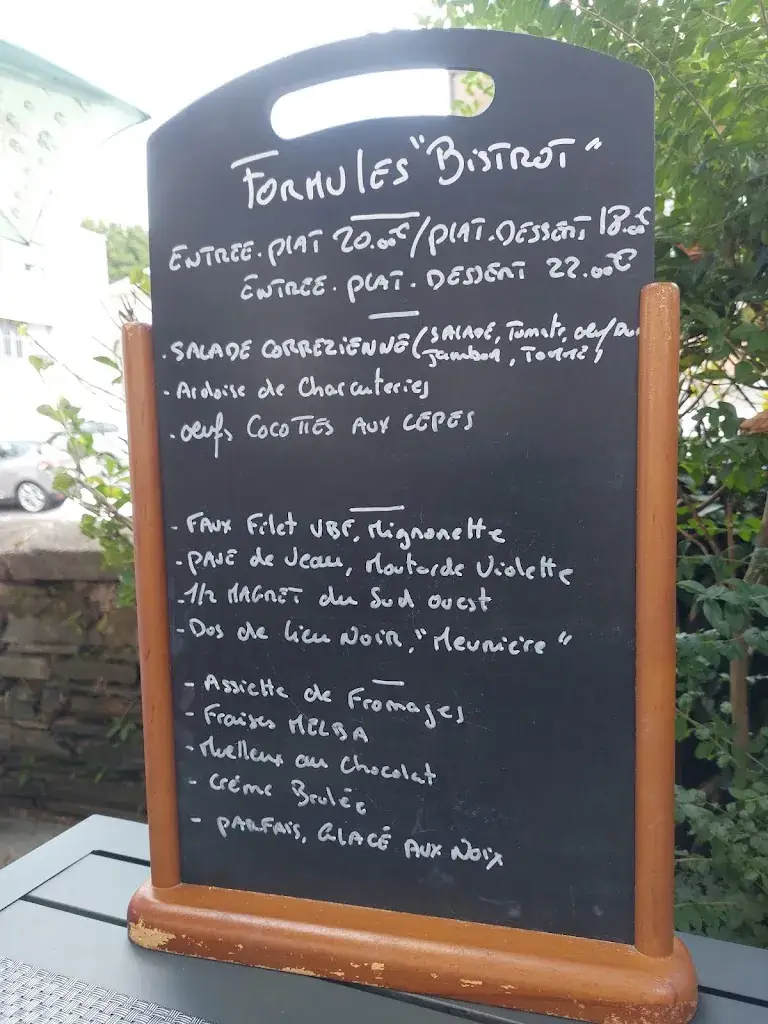 FORMULES "BISTROT"
ENTREE. PLAT 20.00€ / PLAT. DESSERT 18.00€
ENTREE. PLAT. DESSERT 22.00€
. SALADE CORREZIENNE (SALADE, Tomate, oeuf Dur
Jambon, TOMME)
- Ardoise de Charcuteries
- oeufs COCOTTES AUX CEPES
- FAUX Filet VBF, Mignonette
- PAVE de Veau, Moutarde Violette
- 1/2 MAGRET du Sud ouest
- Dos de lieu NOIR, "Meuniere"
- Assiette de Fromages
- Fraises MELBA
- Moelleux au Chocolat
- Crème Brulée
- PARFAIS, GLACÉ AUX NOIX